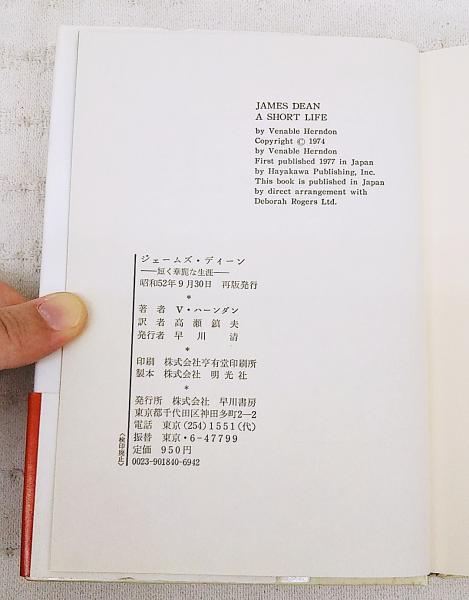 JAMES DEAN
A SHORT LIFE
by Venable Herndon
Copyright © 1974
by Venable Herndon
First published 1977 in Japan
by Hayakawa Publishing, Inc.
This book is published in Japan
by direct arrangement with
Deborah Rogers Ltd.
ジェームズ・ディーン
──短く華麗な生涯──
昭和52年9月30日 再版発行
*
著者 V・ハーンダン
訳者 高瀬鎮夫
発行者 早川清
*
印刷 株式会社亨有堂印刷所
製本 株式会社 明光社
*
発行所 株式会社 早川書房
東京都千代田区神田多町2―2
電話 東京(254)1551(代)
振替 東京・6-47799
定価 950円
0023-901840-6942
〈検印廃止〉